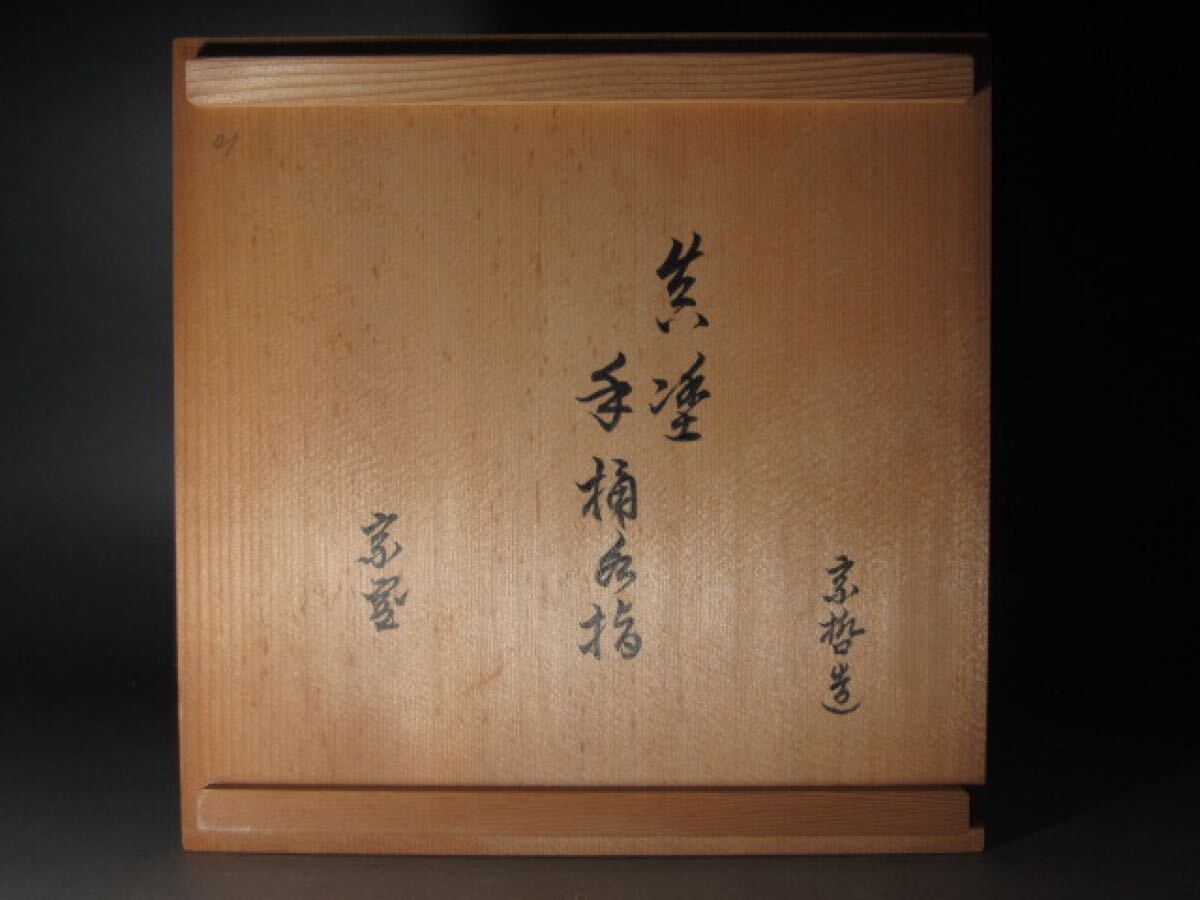 宗哲造
真塗
手桶水指
宗室
01